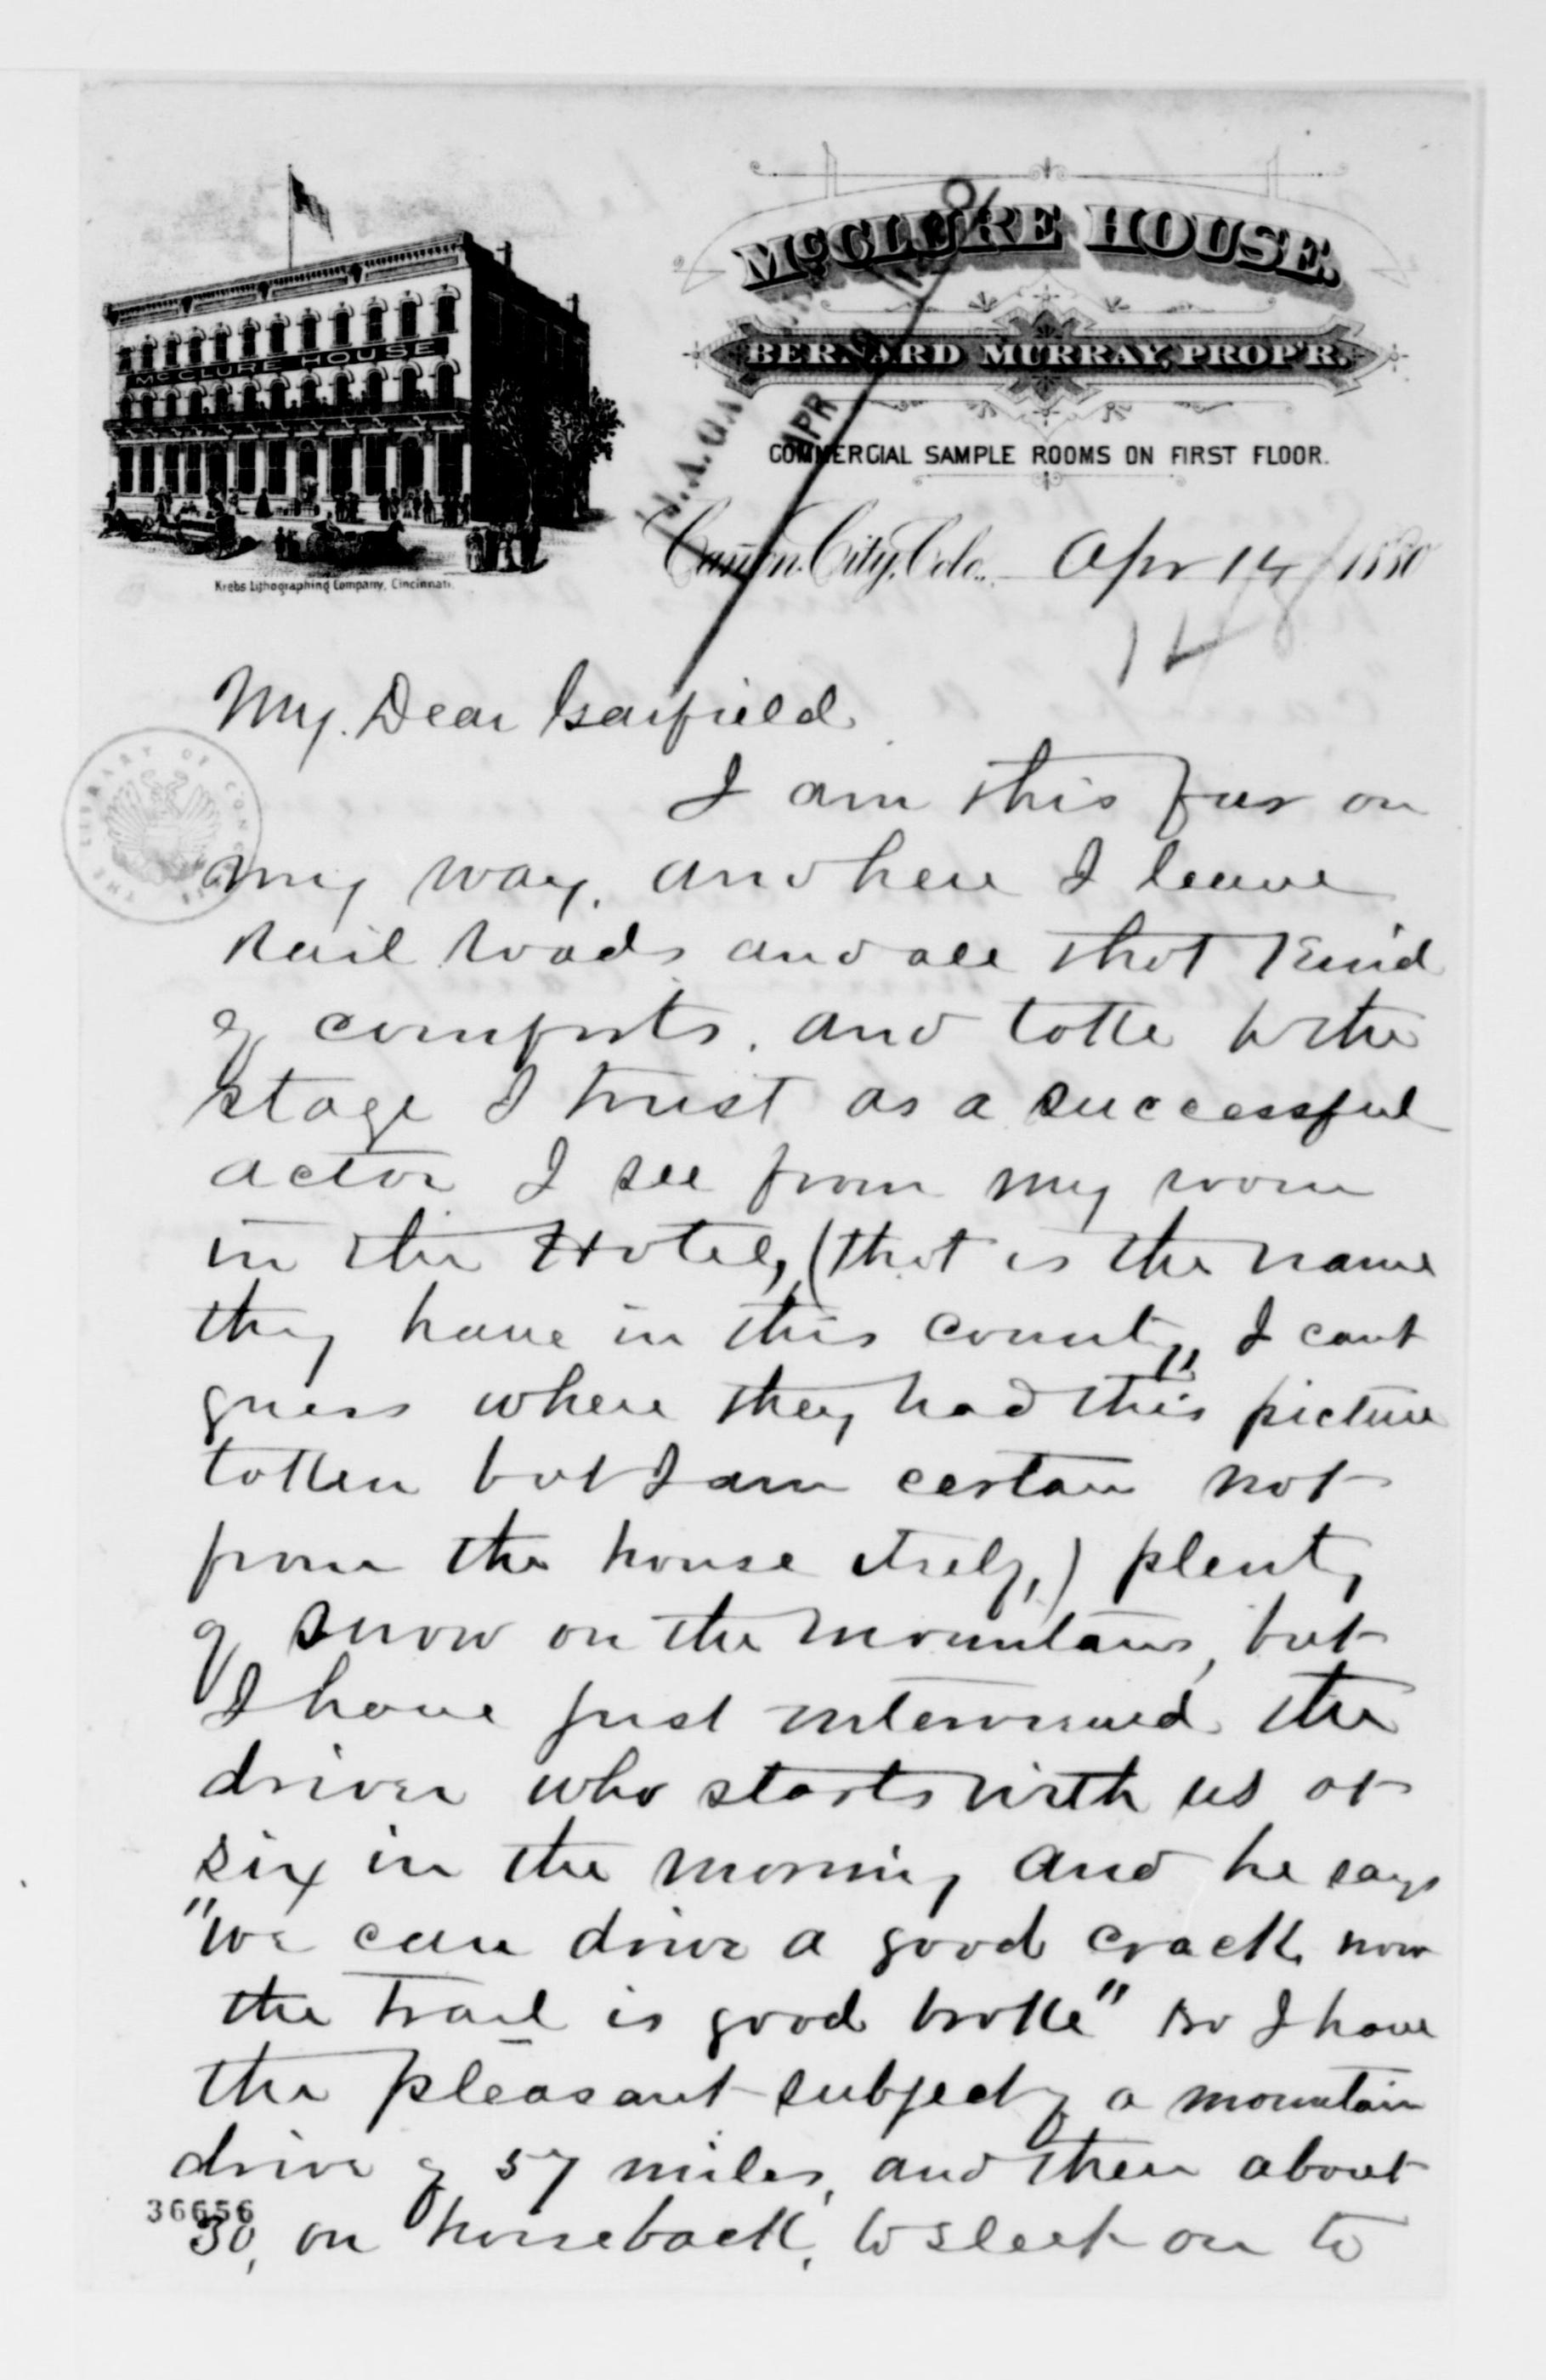 McCLURE HOUSE
McCLURE HOUSE.
BERNARD MURRAY, PROP'R.
COMMERCIAL SAMPLE ROOMS ON FIRST FLOOR.
Krebs Lithographing Company, Cincinnati.
J. A. GA
APR
Cañon City, Colo., Apr 14 1880
My Dear Garfield
I am this far on
my way, and here I leave
Rail Roads and all that kind
of comforts, and take to the
stage I trust as a successful
actor I see from my room
in the Hotel, (that is the name
they have in this country, I cant
guess where they had "this" picture
taken but I am certain not
from the house itself,) plenty
of snow on the mountains, but
I have just interviewed the
driver who starts with us at
six in the morning and he says
"we can drive a good crack now
the trail is good broke" so I have
the pleasant subject of a mountain
drive of 57 miles, and then about
30, on horseback, to sleep on to
THE LIBRARY OF CONGRESS
36656